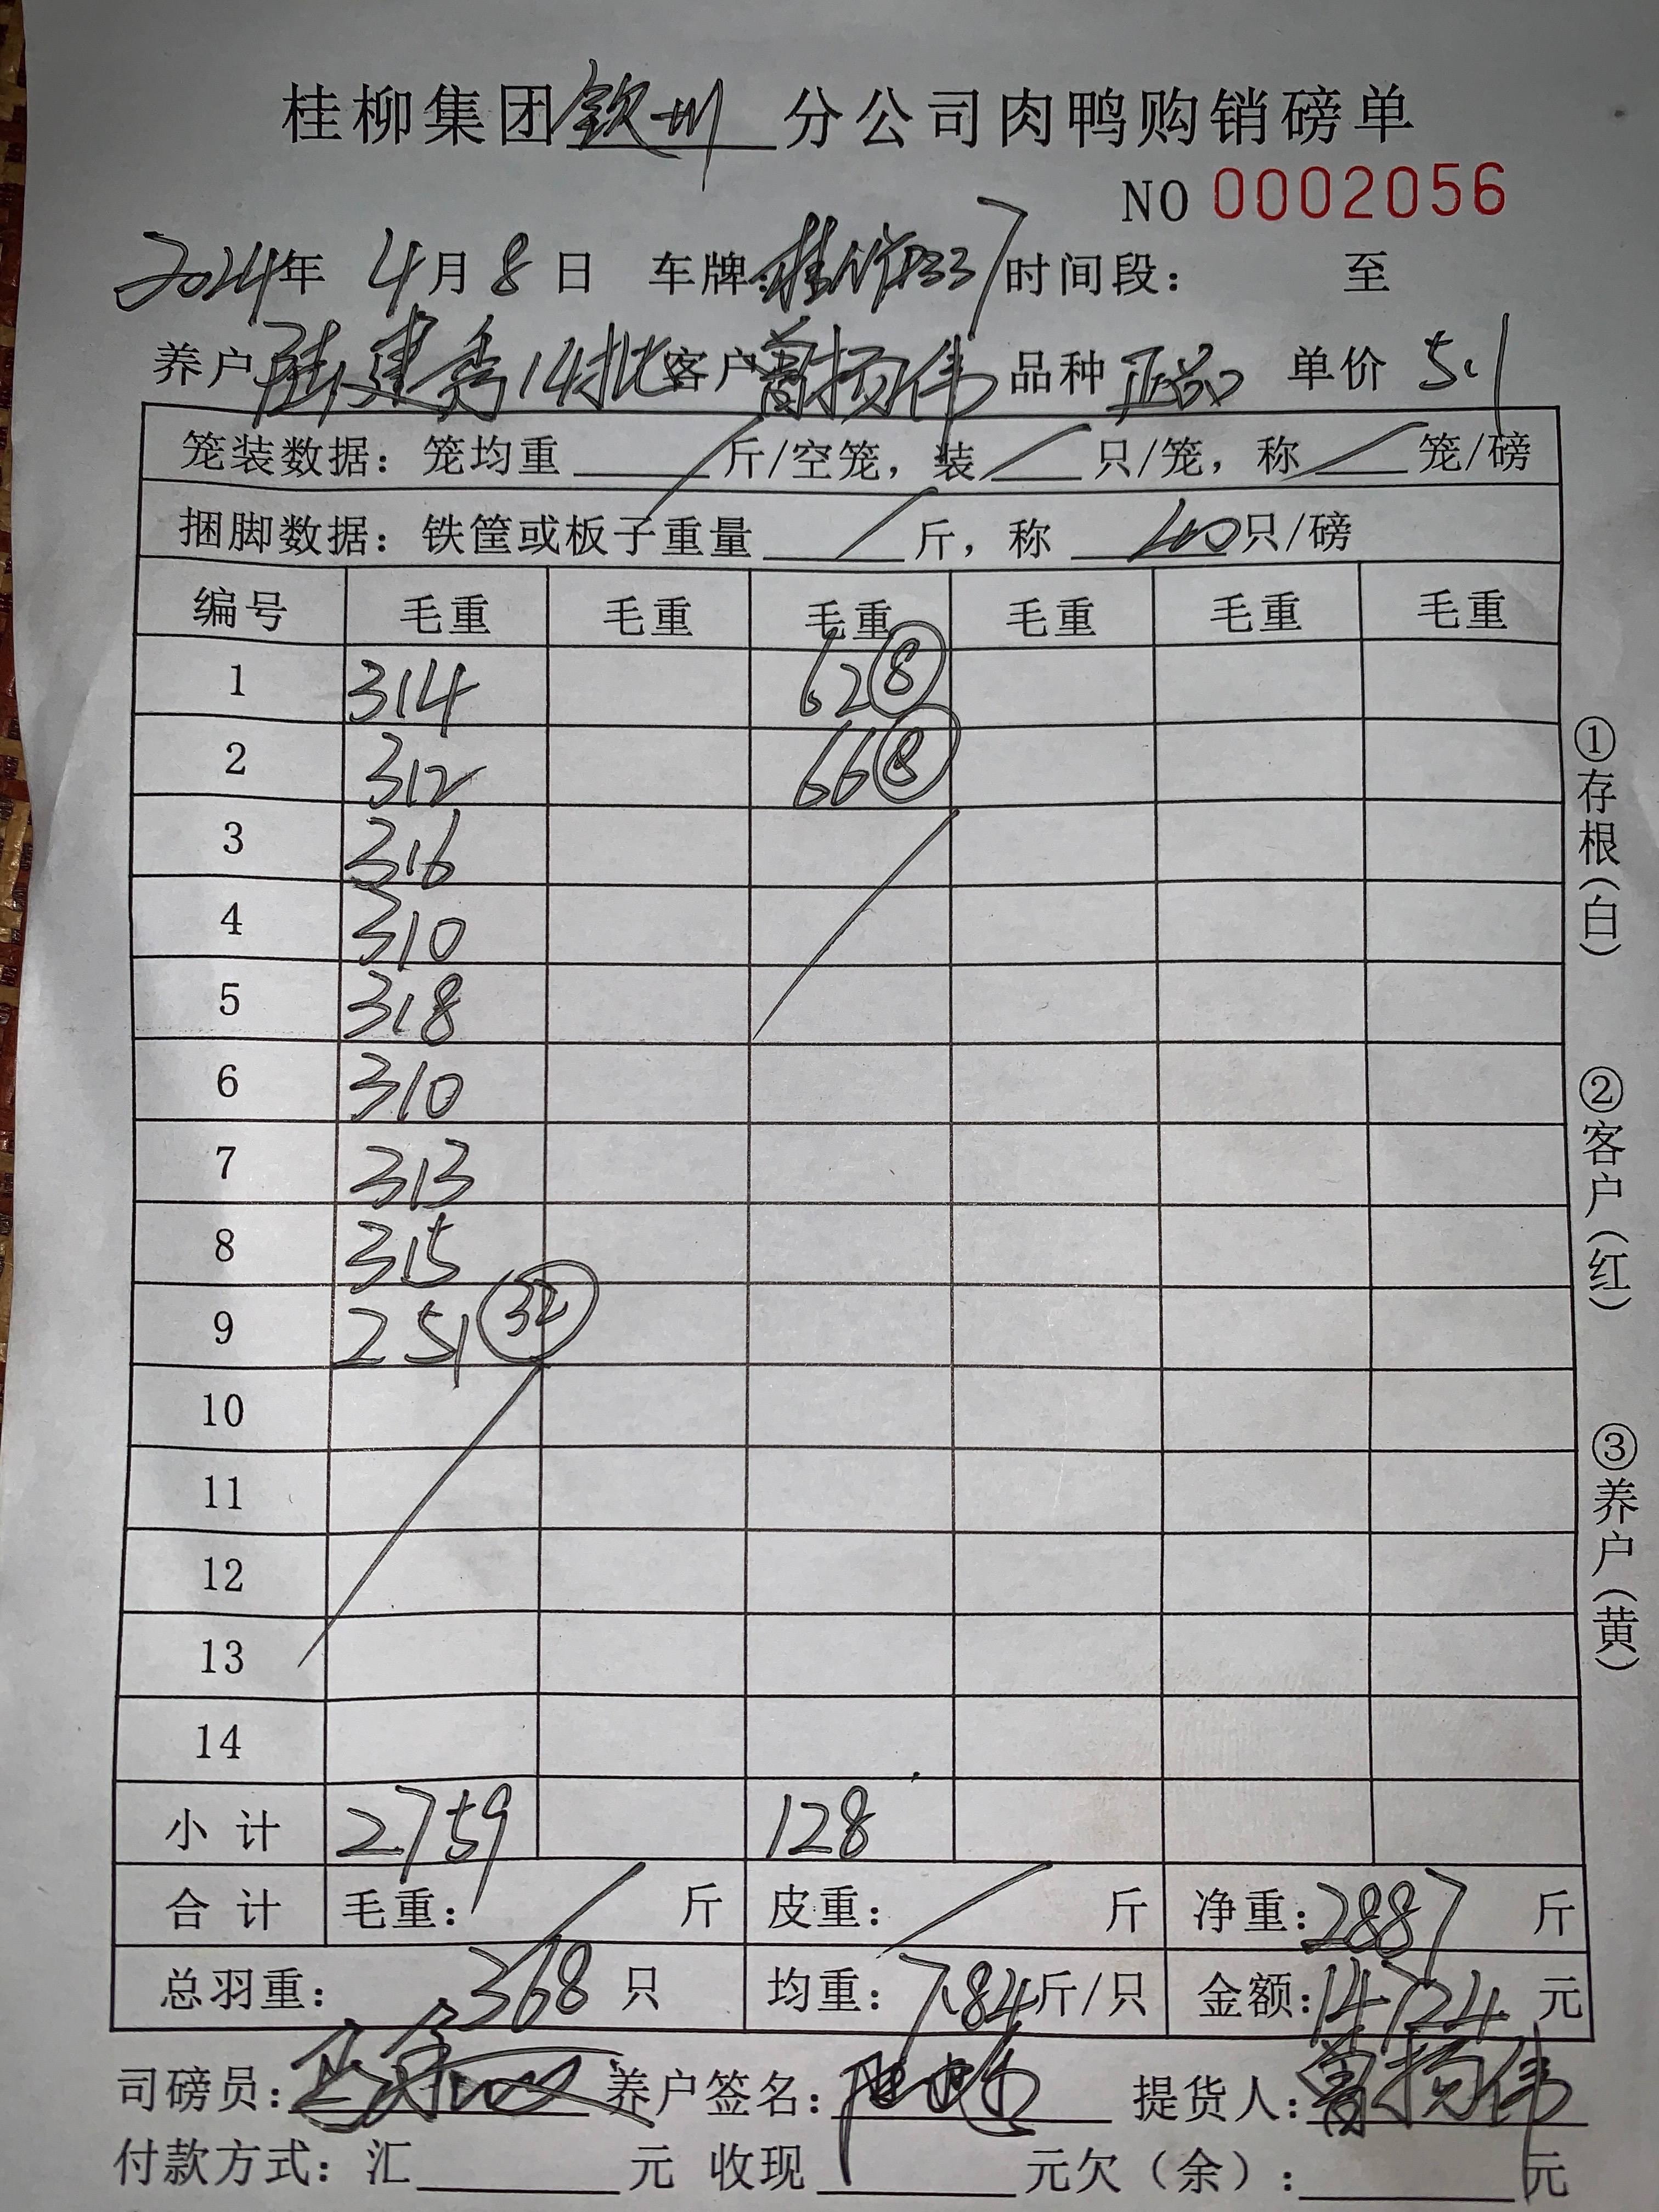 桂柳集团钦州分公司肉鸭购销磅单
NO 0002056
2024年 4月8日 车牌: 时间段: 至
养户陆建秀14批客户曾扬伟 品种正品 单价5.1
笼装数据: 笼均重 / 斤/空笼, 装 / 只/笼, 称 / 笼/磅
捆脚数据: 铁筐或板子重量 / 斤, 称 40只/磅
编号 毛重 毛重 毛重 毛重 毛重 毛重
1 314 62⑧
2 312 66⑧
3 316
4 310
5 318
6 310
7 313
8 315
9 251 ㉜
10
11
12
13
14
小计 2759 128
合计 毛重: / 斤 皮重: / 斤 净重: 2887 斤
总羽重: 368 只 均重: 7.84斤/只 金额: 14724 元
司磅员: 养户签名: 提货人: 曾扬伟
付款方式: 汇 元 收现 元欠(余): 元
①存根(白)
②客户(红)
③养户(黄)